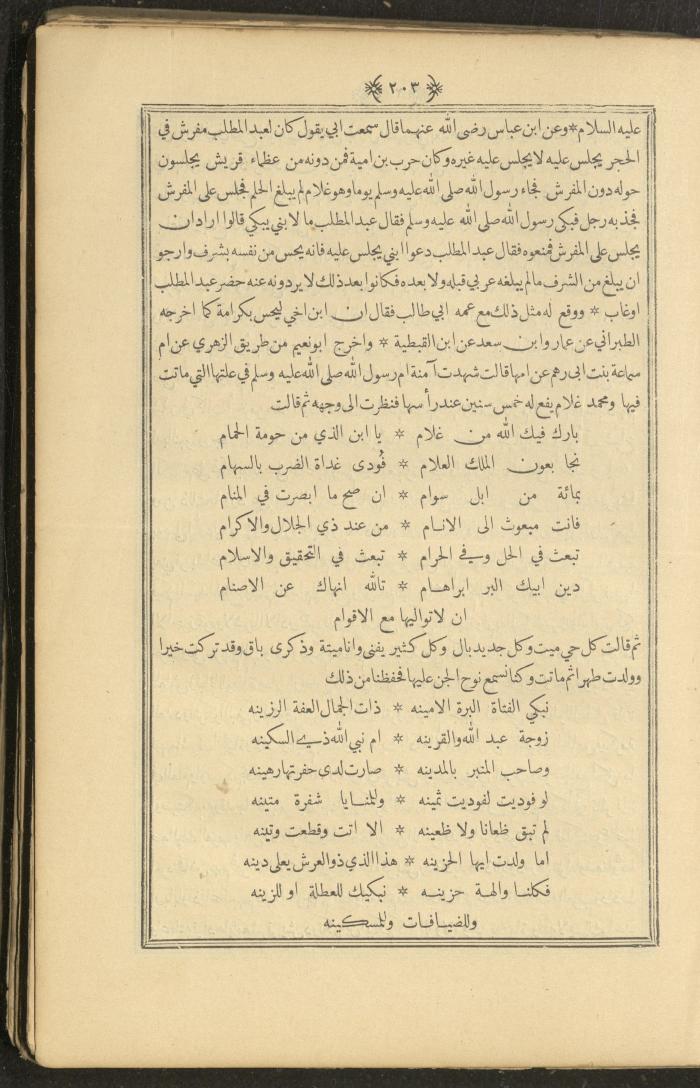 ﴿٢٠٣﴾
عليه السلام * وعن ابن عباس رضى الله عنهما قال سمعت ابي يقول كان لعبد المطلب مفرش في
الحجر يجلس عليه لا يجلس عليه غيره وكان حرب بن امية فمن دونه من عظماء قريش يجلسون
حوله دون المفرش فجاء رسول الله صلى الله عليه وسلم يوما وهو غلام لم يبلغ الحلم فجلس على المفرش
فجذبه رجل فبكى رسول الله صلى الله عليه وسلم فقال عبد المطلب ما لابني يبكي قالوا اراد ان
يجلس على المفرش فمنعوه فقال عبد المطلب دعوا ابني يجلس عليه فانه يحس من نفسه بشرف وارجو
ان يبلغ من الشرف ما لم يبلغه عربي قبله ولا بعده فكانوا بعد ذلك لا يردونه عنه حضر عبد المطلب
او غاب * ووقع له مثل ذلك مع عمه ابي طالب فقال ان ابن اخي ليحس بكرامة كما اخرجه
الطبراني عن عمار وابن سعد عن ابن القبطية * واخرج ابو نعيم من طريق الزهري عن ام
سماعة بنت ابى رهم عن امها قالت شهدت آمنة ام رسول الله صلى الله عليه وسلم في علتها التي ماتت
فيها ومحمد غلام يفع له خمس سنين عند رأسها فنظرت الى وجهه ثم قالت
بارك فيك الله من غلام * يا ابن الذي من حومة الحمام
نجا بعون الملك العلام * فُودى غداة الضرب بالسهام
بمائة من ابل سوام * ان صح ما ابصرت في المنام
فانت مبعوث الى الانام * من عند ذي الجلال والاكرام
تبعث في الحل وفي الحرام * تبعث في التحقيق والاسلام
دين ابيك البر ابراهام * تالله انهاك عن الاصنام
ان لا تواليها مع الاقوام
ثم قالت كل حي ميت وكل جديد بال وكل كثير يفنى وانا ميتة وذكرى باق وقد تركت خيرا
وولدت طهرا ثم ماتت وكنا نسمع نوح الجن عليها فحفظنا من ذلك
نبكي الفتاة البرة الامينه * ذات الجمال العفة الرزينه
زوجة عبد الله والقرينه * ام نبي الله ذي السكينه
وصاحب المنبر بالمدينه * صارت لدى حفرتها رهينه
لو فوديت لفوديت ثمينه * وللمنايا شفرة متينه
لم تبق ظعانا ولا ظعينه * الا اتت وقطعت وتينه
اما ولدت ايها الحزينه * هذا الذي ذو العرش يعلى دينه
فكلنا والهة حزينه * نبكيك للعطلة او للزينه
وللضيافات وللمسكينه